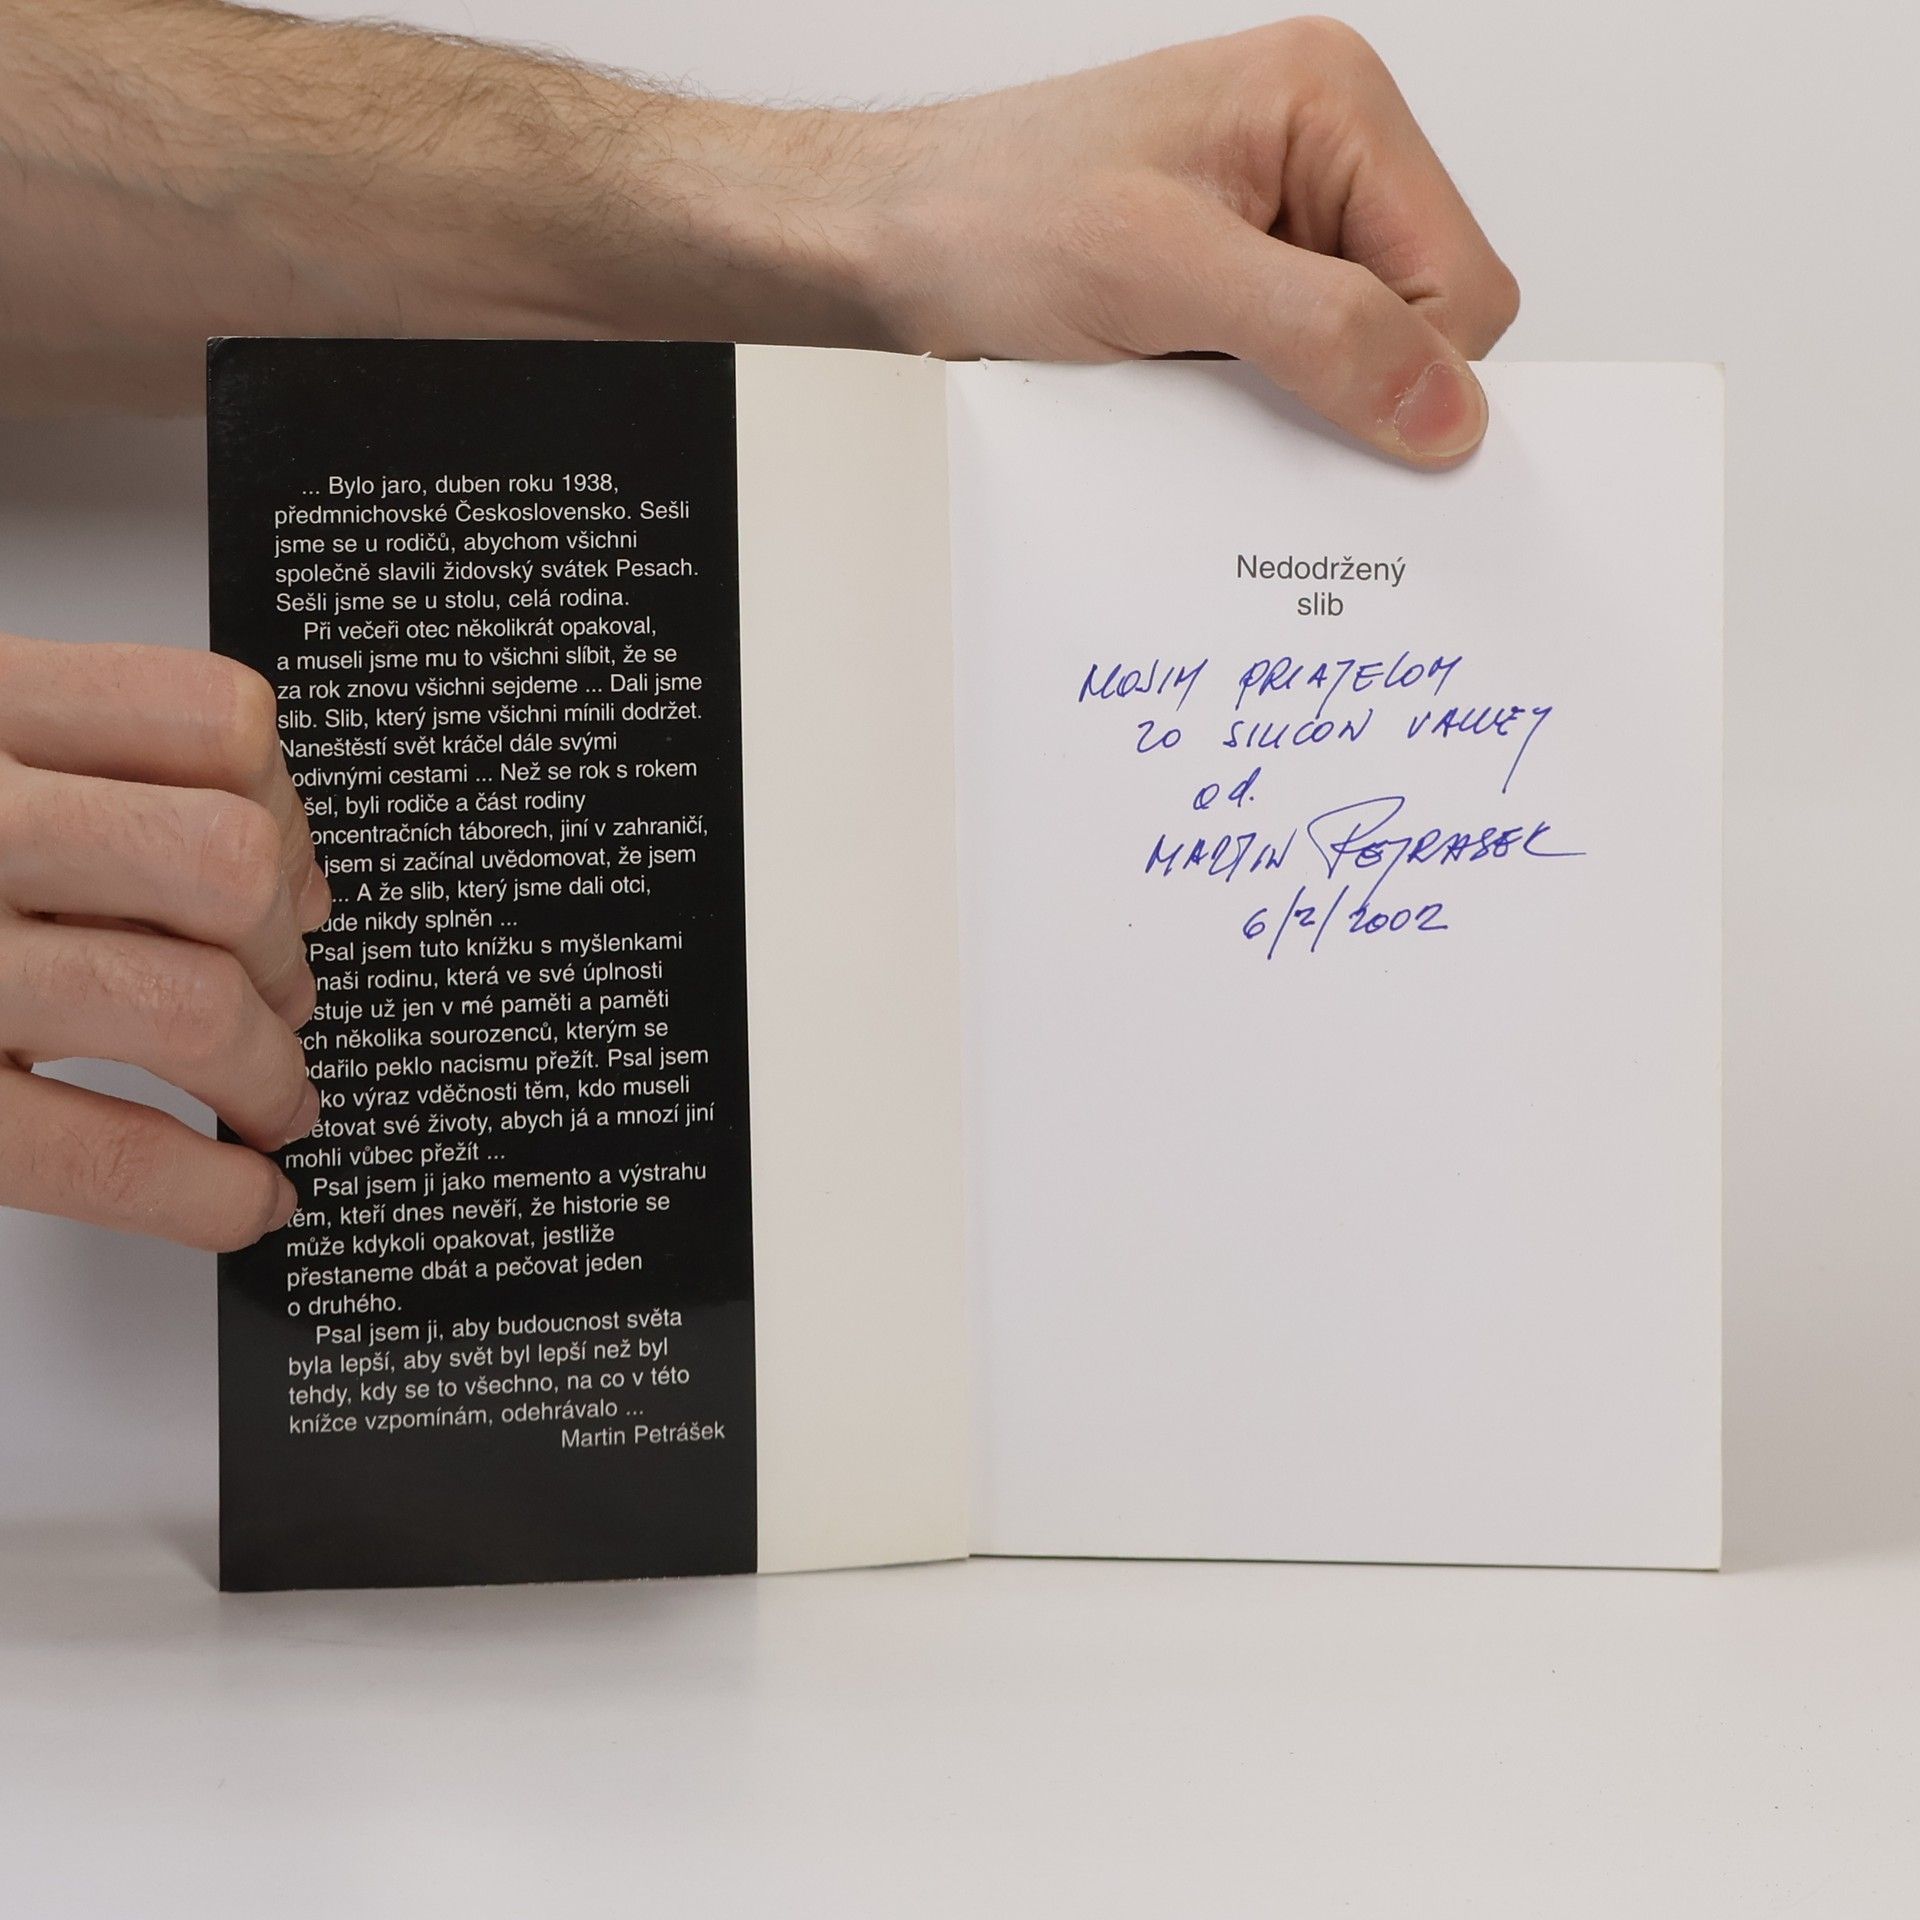 ... Bylo jaro, duben roku 1938,
předmnichovské Československo. Sešli
jsme se u rodičů, abychom všichni
společně slavili židovský svátek Pesach.
Sešli jsme se u stolu, celá rodina.
Při večeři otec několikrát opakoval,
a museli jsme mu to všichni slíbit, že se
za rok znovu všichni sejdeme ... Dali jsme
slib. Slib, který jsme všichni mínili dodržet.
Naneštěstí svět kráčel dále svými
odivnými cestami ... Než se rok s rokem
šel, byli rodiče a část rodiny
oncentračních táborech, jiní v zahraničí,
jsem si začínal uvědomovat, že jsem
... A že slib, který jsme dali otci,
ude nikdy splněn ...
Psal jsem tuto knížku s myšlenkami
naši rodinu, která ve své úplnosti
stuje už jen v mé paměti a paměti
ěch několika sourozenců, kterým se
dařilo peklo nacismu přežít. Psal jsem
ko výraz vděčnosti těm, kdo museli
ětovat své životy, abych já a mnozí jiní
mohli vůbec přežít ...
Psal jsem ji jako memento a výstrahu
těm, kteří dnes nevěří, že historie se
může kdykoli opakovat, jestliže
přestaneme dbát a pečovat jeden
o druhého.
Psal jsem ji, aby budoucnost světa
byla lepší, aby svět byl lepší než byl
tehdy, kdy se to všechno, na co v této
knížce vzpomínám, odehrávalo ...
Martin Petrášek
Nedodržený
slib
MOJIM PRIATELOM
ZO SILICON VALLEY
od.
MARTIN PETRASEK
6/2/2002